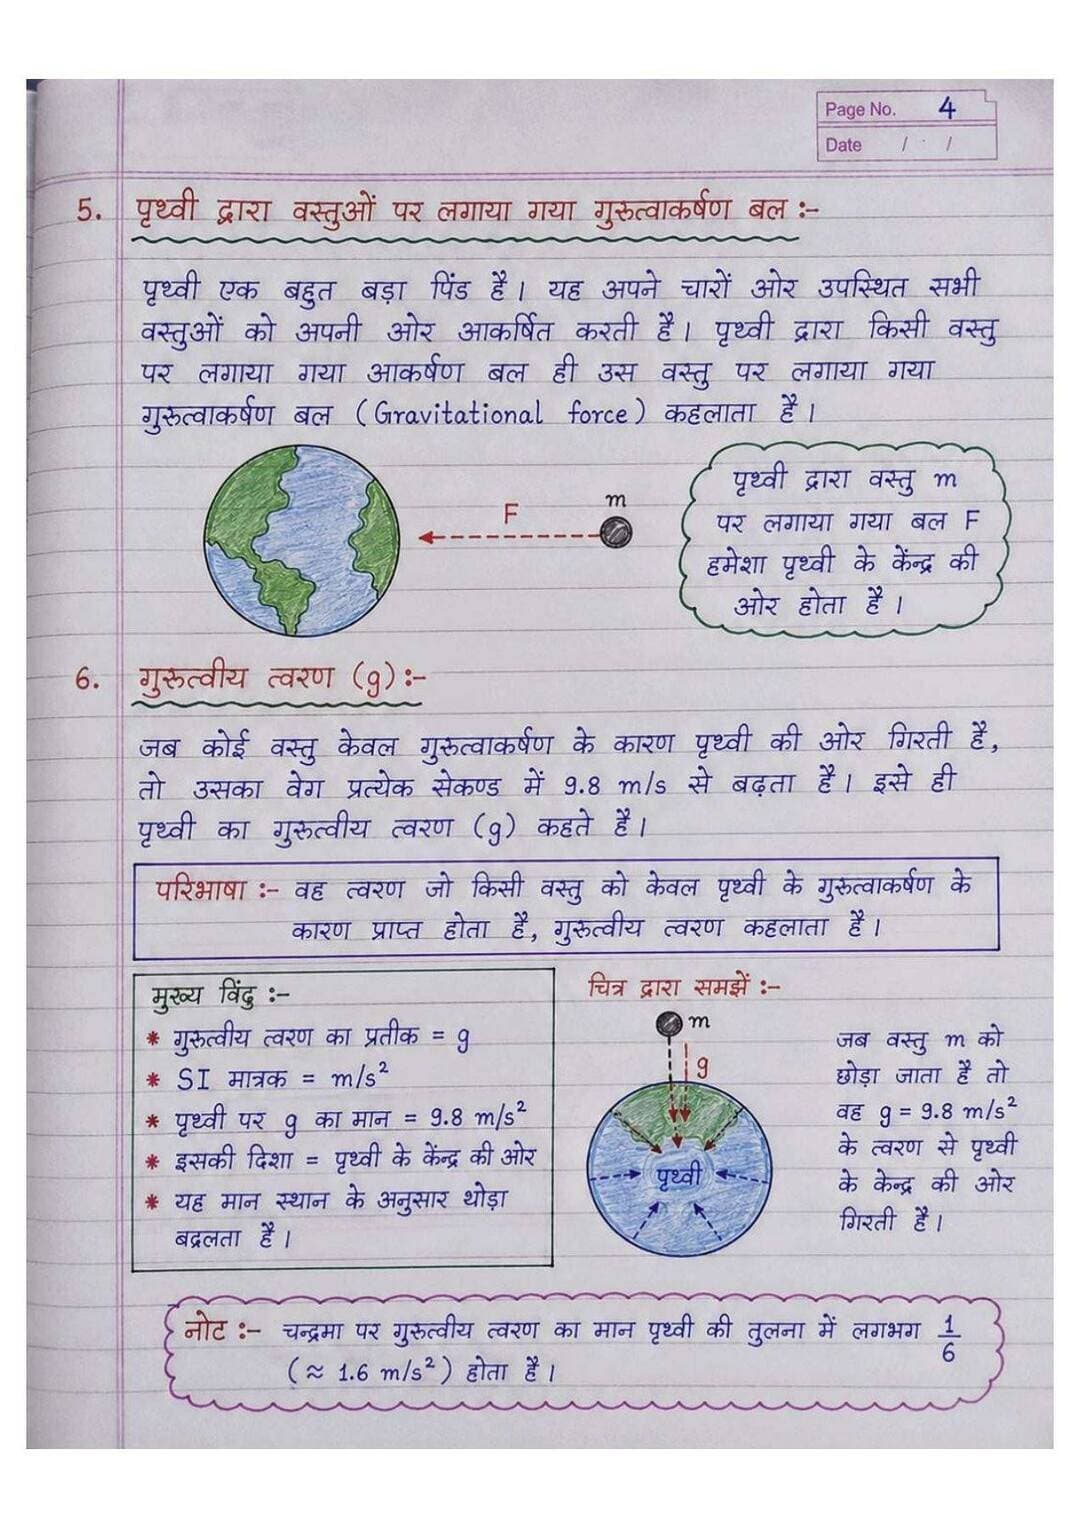 Page No. 4
Date / /
5. पृथ्वी द्वारा वस्तुओं पर लगाया गया गुरुत्वाकर्षण बल :-
पृथ्वी एक बहुत बड़ा पिंड है। यह अपने चारों ओर उपस्थित सभी
वस्तुओं को अपनी ओर आकर्षित करती है। पृथ्वी द्वारा किसी वस्तु
पर लगाया गया आकर्षण बल ही उस वस्तु पर लगाया गया
गुरुत्वाकर्षण बल (Gravitational force) कहलाता है।
F
m
पृथ्वी द्वारा वस्तु m
पर लगाया गया बल F
हमेशा पृथ्वी के केंन्द्र की
ओर होता है।
6. गुरुत्वीय त्वरण (g) :-
जब कोई वस्तु केवल गुरुत्वाकर्षण के कारण पृथ्वी की ओर गिरती है,
तो उसका वेग प्रत्येक सेकण्ड में 9.8 m/s से बढ़ता है। इसे ही
पृथ्वी का गुरुत्वीय त्वरण (g) कहते है।
परिभाषा :- वह त्वरण जो किसी वस्तु को केवल पृथ्वी के गुरुत्वाकर्षण के
कारण प्राप्त होता है, गुरुत्वीय त्वरण कहलाता है।
मुख्य विंदु :-
* गुरुत्वीय त्वरण का प्रतीक = g
* SI मात्रक = m/s²
* पृथ्वी पर g का मान = 9.8 m/s²
* इसकी दिशा = पृथ्वी के केंन्द्र की ओर
* यह मान स्थान के अनुसार थोड़ा
बदलता है।
चित्र द्वारा समझें :-
m
g
पृथ्वी
जब वस्तु m को
छोड़ा जाता है तो
वह g = 9.8 m/s²
के त्वरण से पृथ्वी
के केन्द्र की ओर
गिरती है।
नोट :- चन्द्रमा पर गुरुत्वीय त्वरण का मान पृथ्वी की तुलना में लगभग 1/6
(≈ 1.6 m/s²) होता है।